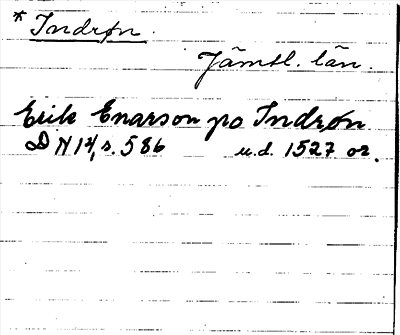 * Indrøn.
Jämtl. län.
Erik Enarson po Indrøn
DN 14, s. 586 u.d. 1527 or.